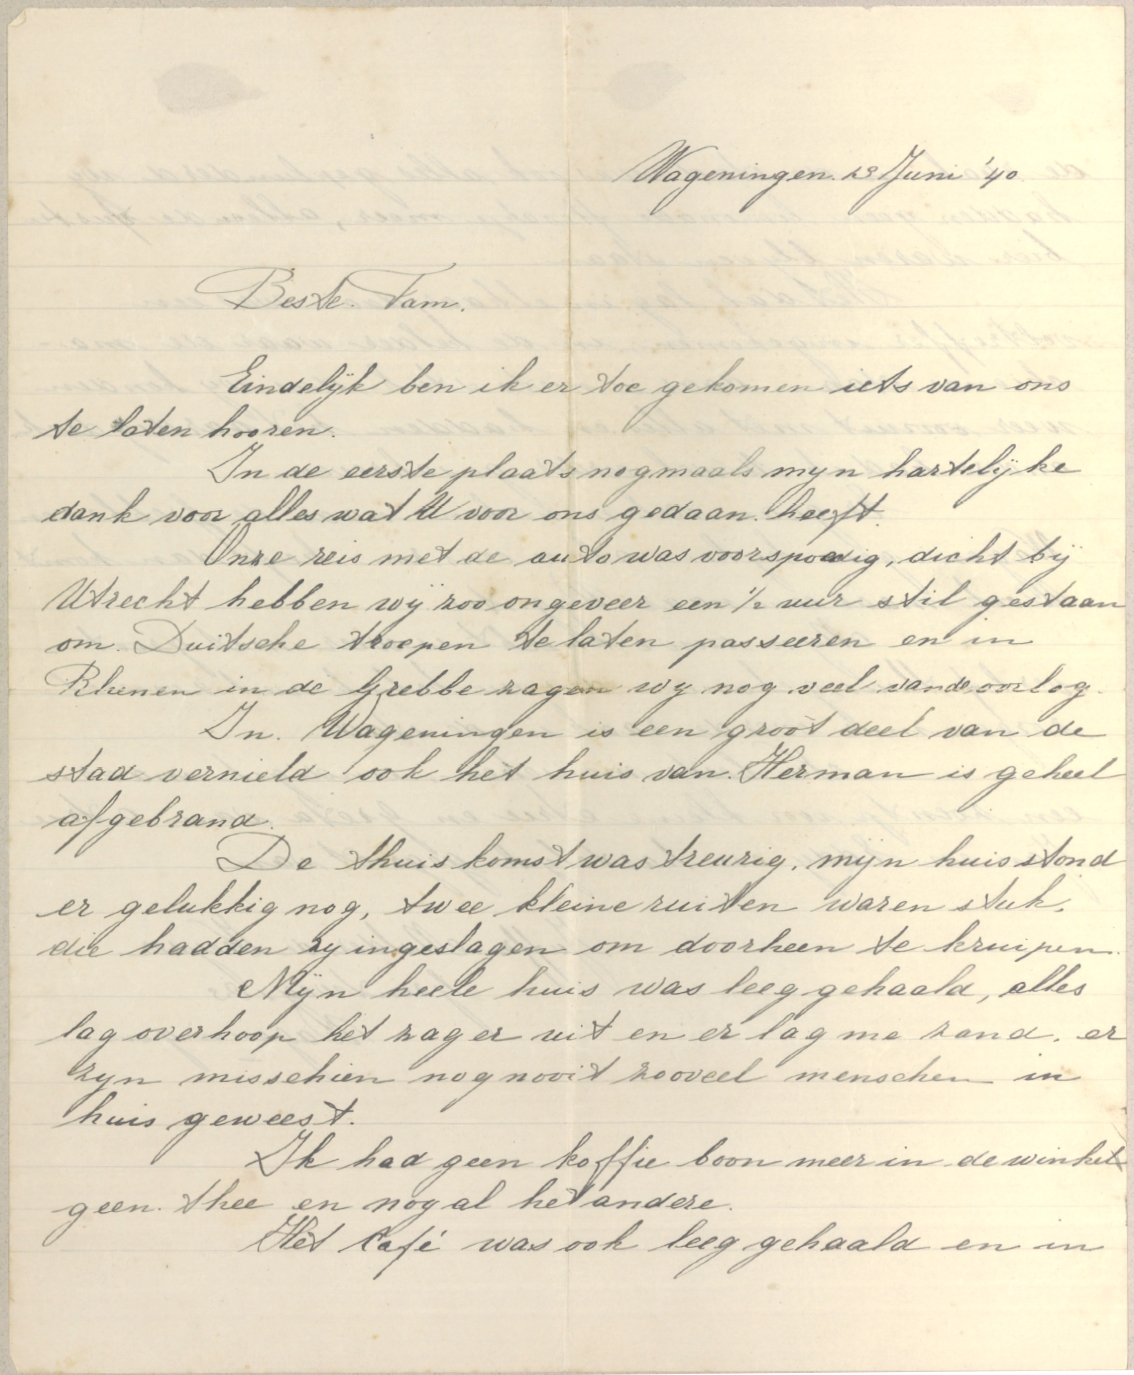 Wageningen. 23 Juni '40
Beste. Fam.
Eindelijk ben ik er toe gekomen iets van ons
te laten hooren.
In de eerste plaats nogmaals myn hartelijke
dank voor alles wat U voor ons gedaan. heeft.
Onze reis met de auto was voorspoedig, dicht bij
Utrecht hebben wij zoo ongeveer een ½ uur stil gestaan
om. Duitsche troepen te laten passeeren en in
Rhenen in de Grebbe zagen wy nog veel van de oorlog.
In. Wageningen is een groot deel van de
stad vernield ook het huis van. Herman is geheel
afgebrand.
De thuis komst was treurig, mijn huis stond
er gelukkig nog, twee kleine ruiten waren stuk,
die hadden zy ingeslagen om doorheen te kruipen.
Mijn heele huis was leeg gehaald, alles
lag overhoop het zag er uit en er lag me zand. er
zyn misschien nog nooit zooveel menschen in
huis geweest.
Ik had geen koffie boon meer in de winkel
geen. thee en nog al het andere.
Het Café was ook leeg gehaald en in